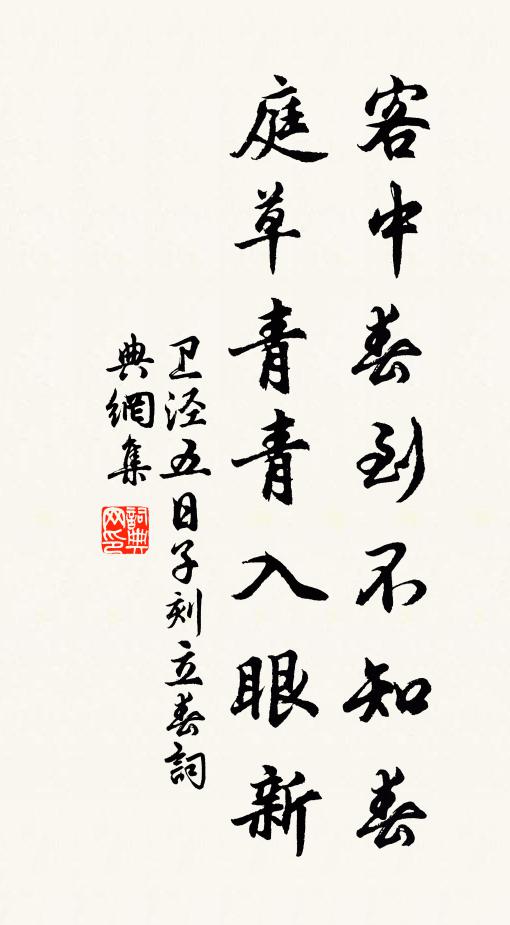 客中春到不知春
庭草青青入眼新
卫泾五日子刻立春詞
典網集
詞典网印